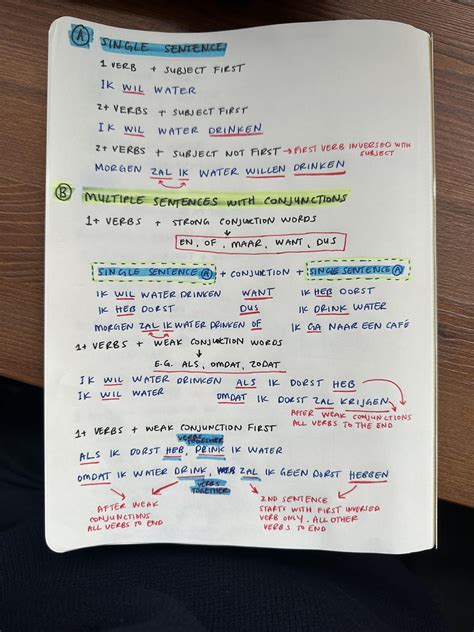 A SINGLE SENTENCE
1 VERB + SUBJECT FIRST
IK WIL WATER
2+ VERBS + SUBJECT FIRST
IK WIL WATER DRINKEN
2+ VERBS + SUBJECT NOT FIRST → FIRST VERB INVERSED WITH SUBJECT
MORGEN ZAL IK WATER WILLEN DRINKEN
B MULTIPLE SENTENCES WITH CONJUNCTIONS
1+ VERBS + STRONG CONJUCTION WORDS
EN, OF, MAAR, WANT, DUS
SINGLE SENTENCE A + CONJUCTION + SINGLE SENTENCE A
IK WIL WATER DRINKEN WANT IK HEB DORST
IK HEB DORST DUS IK DRINK WATER
MORGEN ZAL IK WATER DRINKEN OF IK GA NAAR EEN CAFÉ
1+ VERBS + WEAK CONJUCTION WORDS
E.G. ALS, OMDAT, ZODAT
IK WIL WATER DRINKEN ALS IK DORST HEB
IK WIL WATER OMDAT IK DORST ZAL KRIJGEN
AFTER WEAK CONJUNCTIONS
ALL VERBS TO THE END
1+ VERBS + WEAK CONJUNCTION FIRST
VERBS
TOGETHER
ALS IK DORST HEB, DRINK IK WATER
OMDAT IK WATER DRINK, ZAL IK GEEN DORST HEBBEN
VERBS
TOGETHER
AFTER WEAK
CONJUNCTIONS
ALL VERBS TO END
2ND SENTENCE
STARTS WITH FIRST INVERSED
VERB ONLY. ALL OTHER
VERBS TO END